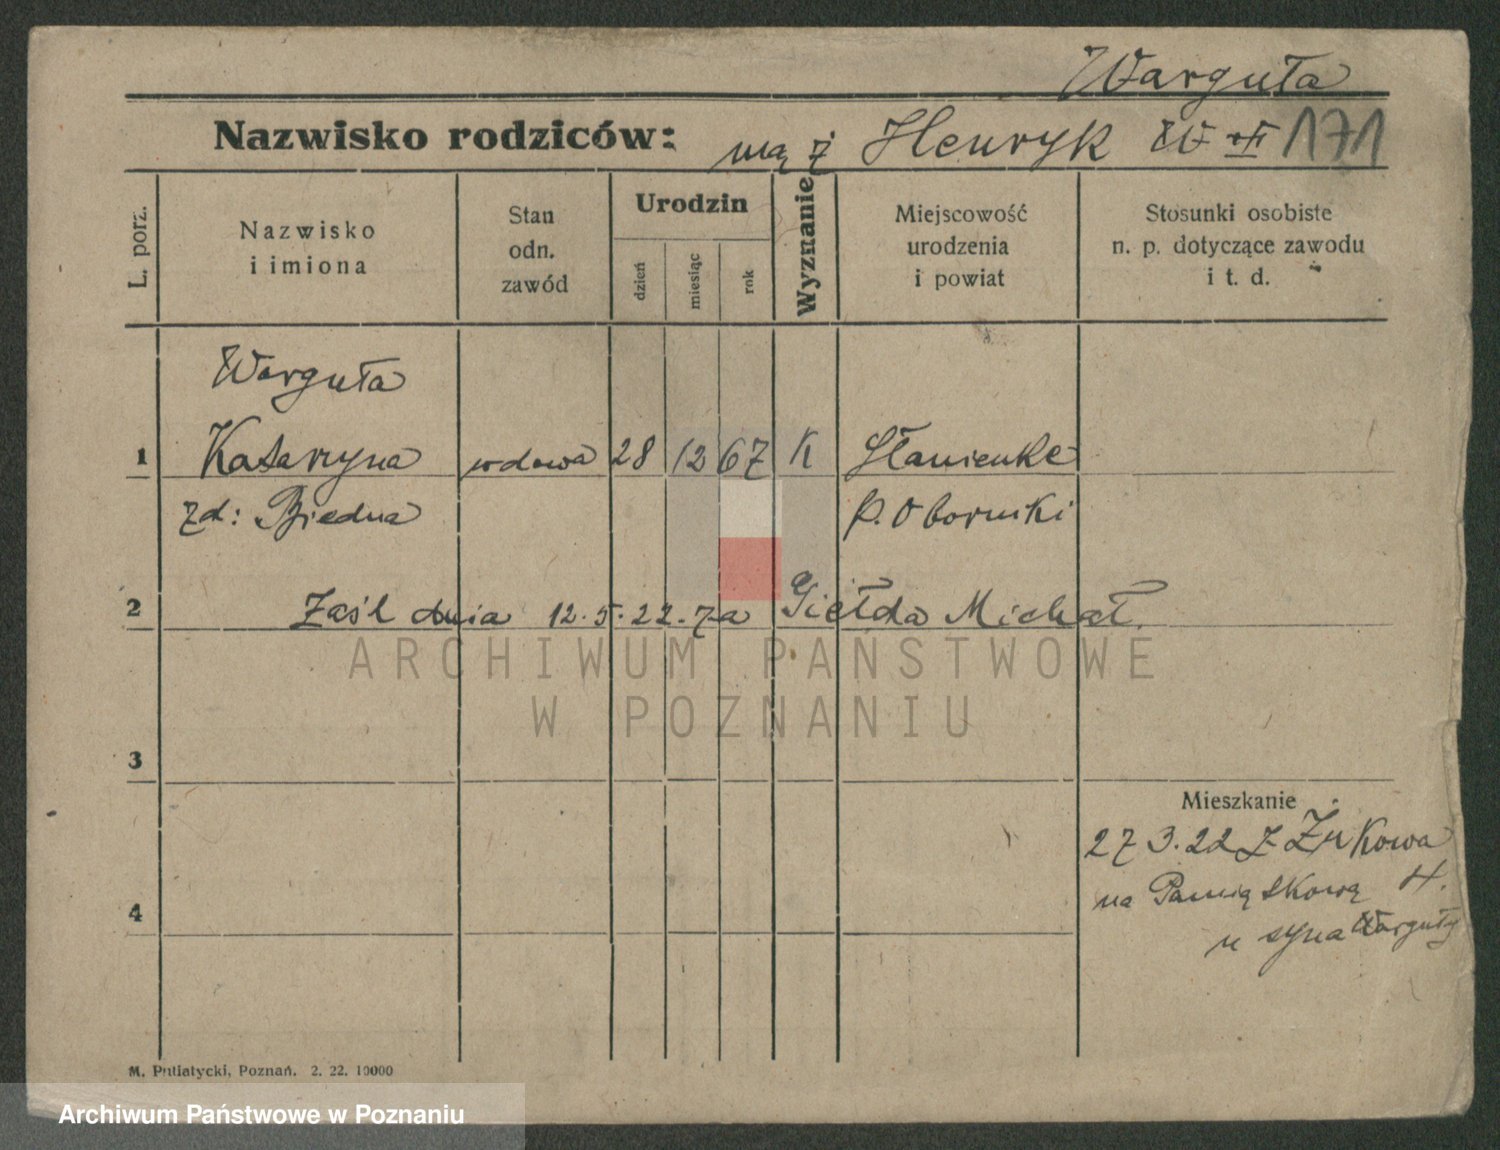 Warguła
Nazwisko rodziców: mąż Henryk W 171
L. porz.
Nazwisko
i imiona
Stan
odn.
zawód
Urodzin
dzień
miesiąc
rok
Wyznanie
Miejscowość
urodzenia
i powiat
Stosunki osobiste
n. p. dotyczące zawodu
i t. d.
Warguła
1 Katarzyna wdowa 28 12 67 K Sławienke
zd: Biedna p. Oborniki
2 Zaśl dnia 12.5.22. za Giełda Michał.
ARCHIWUM PAŃSTWOWE
W POZNANIU
3
Mieszkanie
27 3.22 z Żukowa
4 na Pamiątkową 4.
u syna Warguły
M. Putiatycki, Poznań. 2. 22. 10000
Archiwum Państwowe w Poznaniu